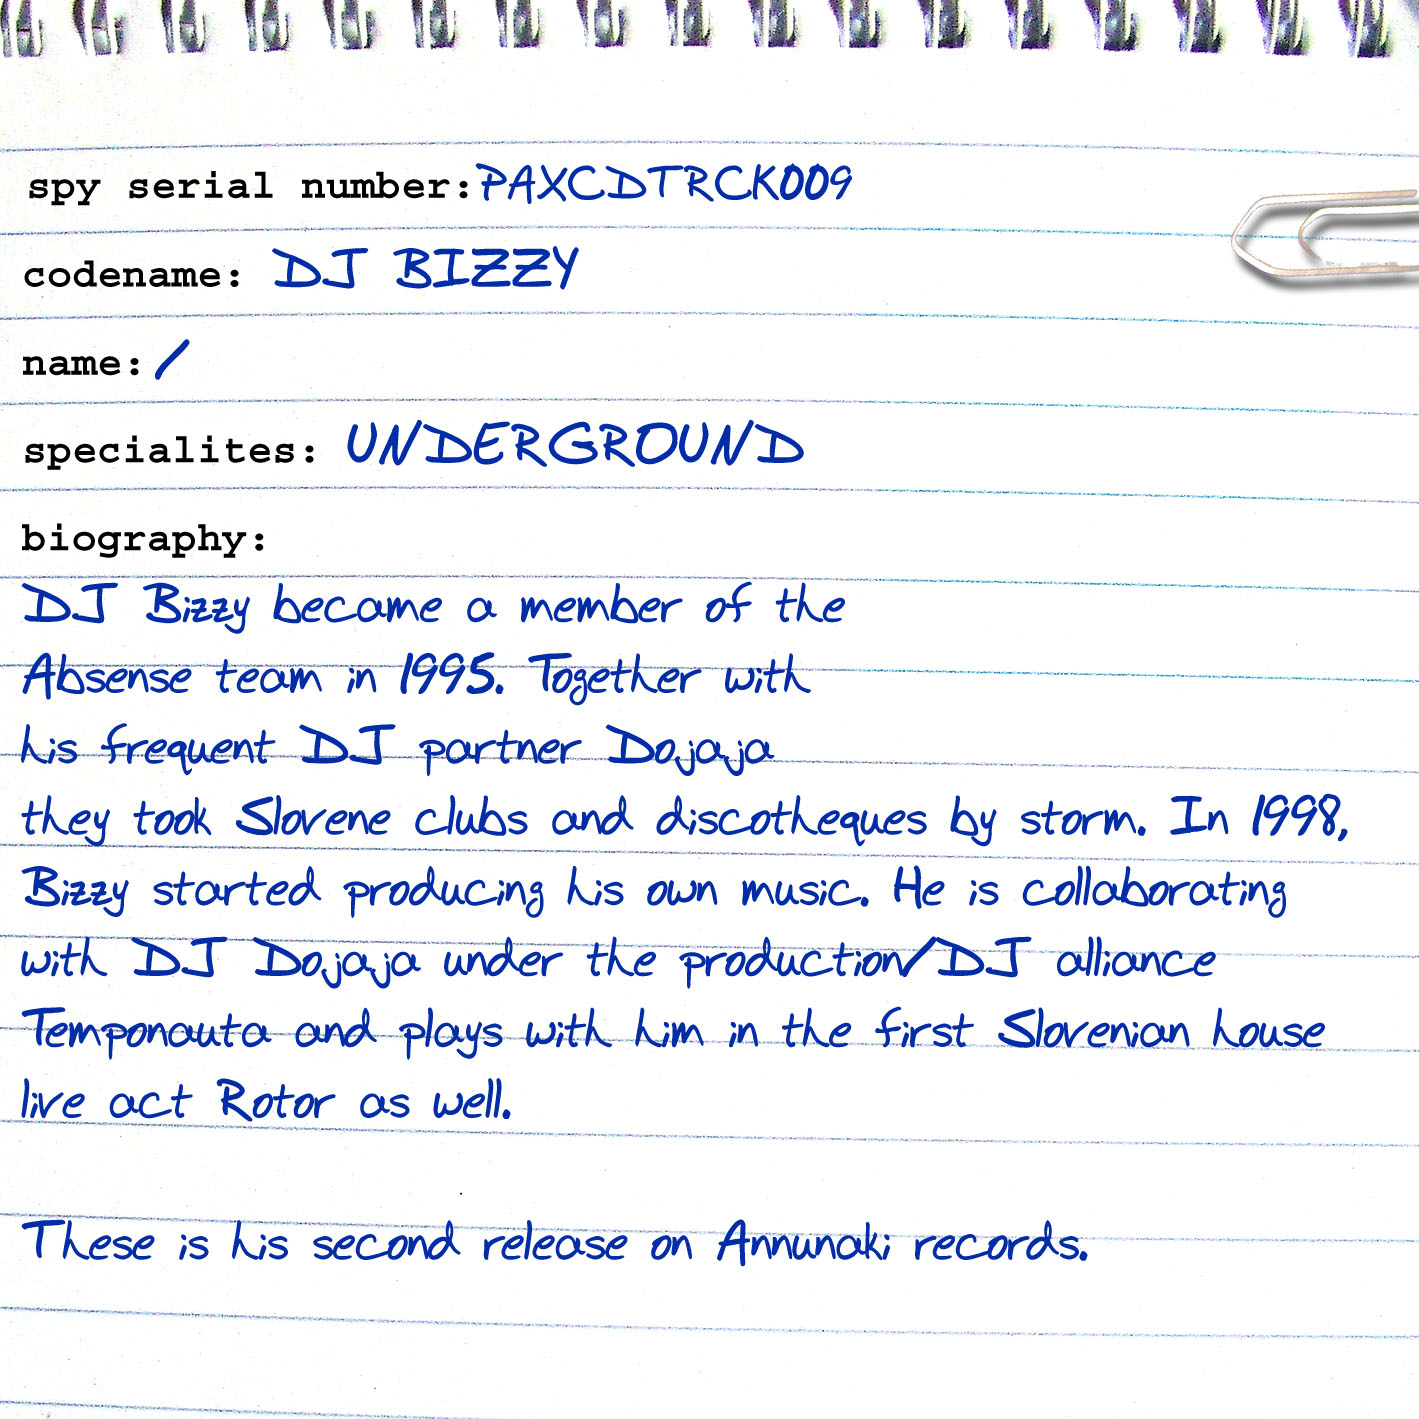 spy serial number: PAXCDTRCK009
codename: DJ BIZZY
name: /
specialites: UNDERGROUND
biography:
DJ Bizzy became a member of the
Absense team in 1995. Together with
his frequent DJ partner Dojaja
they took Slovene clubs and discotheques by storm. In 1998,
Bizzy started producing his own music. He is collaborating
with DJ Dojaja under the production/DJ alliance
Temponauta and plays with him in the first Slovenian house
live act Rotor as well.
These is his second release on Annunaki records.